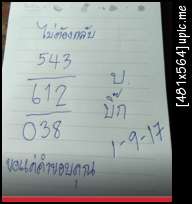 ไม่ต้องกลับ
543
612 บ.
บิ๊ก
038
1-9-17
ขอแค่คำขอบคุณ
[481x564] upic.me